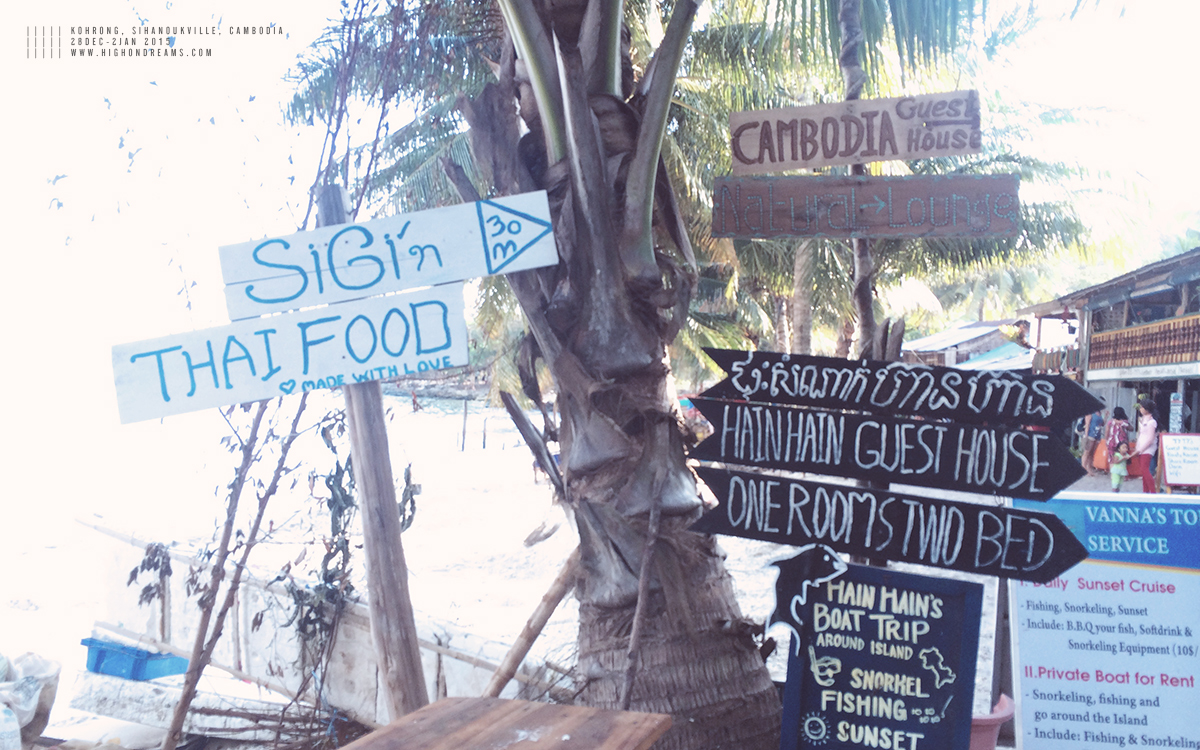 KOHRONG, SIHANOUKVILLE, CAMBODIA
28DEC-2JAN 2015
WWW.HIGHONDREAMS.COM
CAMBODIA Guest House
Natural → Lounge
SiGi'ท
30 m
THAI FOOD
♡ MADE WITH LOVE
ផ្ទះសំណាក់ ហាន ហាន
HAIN HAIN GUEST HOUSE
ONE ROOMS TWO BED
HAIN HAIN'S
BOAT TRIP
AROUND ISLAND
SNORKEL
FISHING
SUNSET
VANNA'S TO
SERVICE
I. Daily Sunset Cruise
- Fishing, Snorkeling, Sunset
- Include: B.B.Q your fish, Softdrink &
Snorkeling Equipment (10$/
II.Private Boat for Rent
- Snorkeling, fishing and
go around the Island
- Include: Fishing & Snorkeling